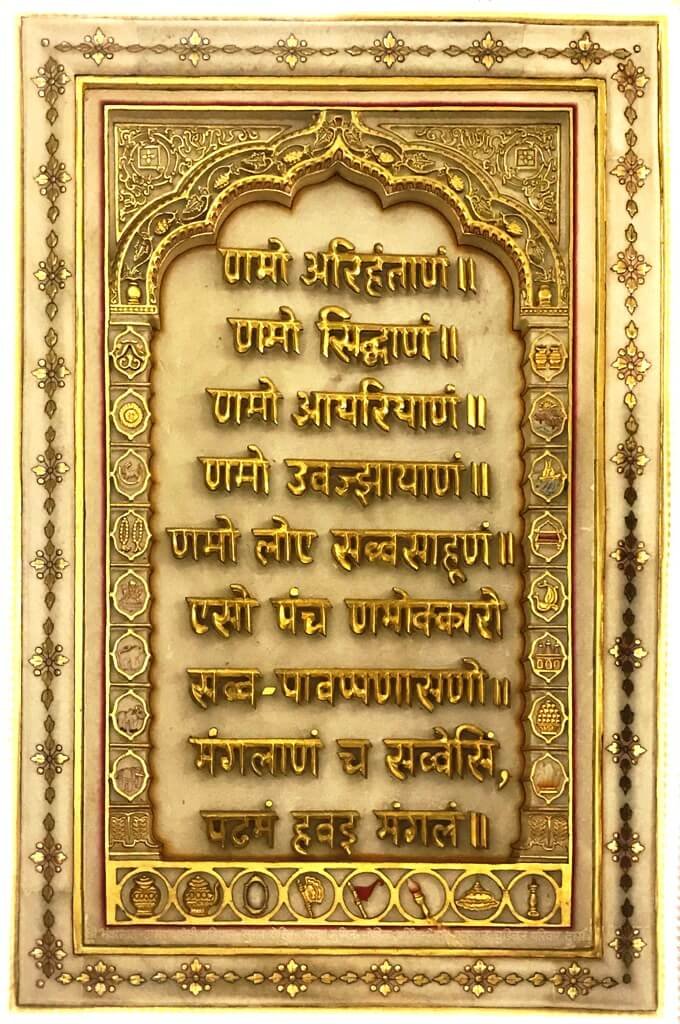 णमो अरिहंताणं॥
णमो सिद्धाणं॥
णमो आयरियाणं॥
णमो उवज्झायाणं॥
णमो लोए सव्वसाहूणं॥
एसो पंच णमोक्कारो
सव्व-पावप्पणासणो॥
मंगलाणं च सव्वेसिं,
पढमं हवइ मंगलं॥